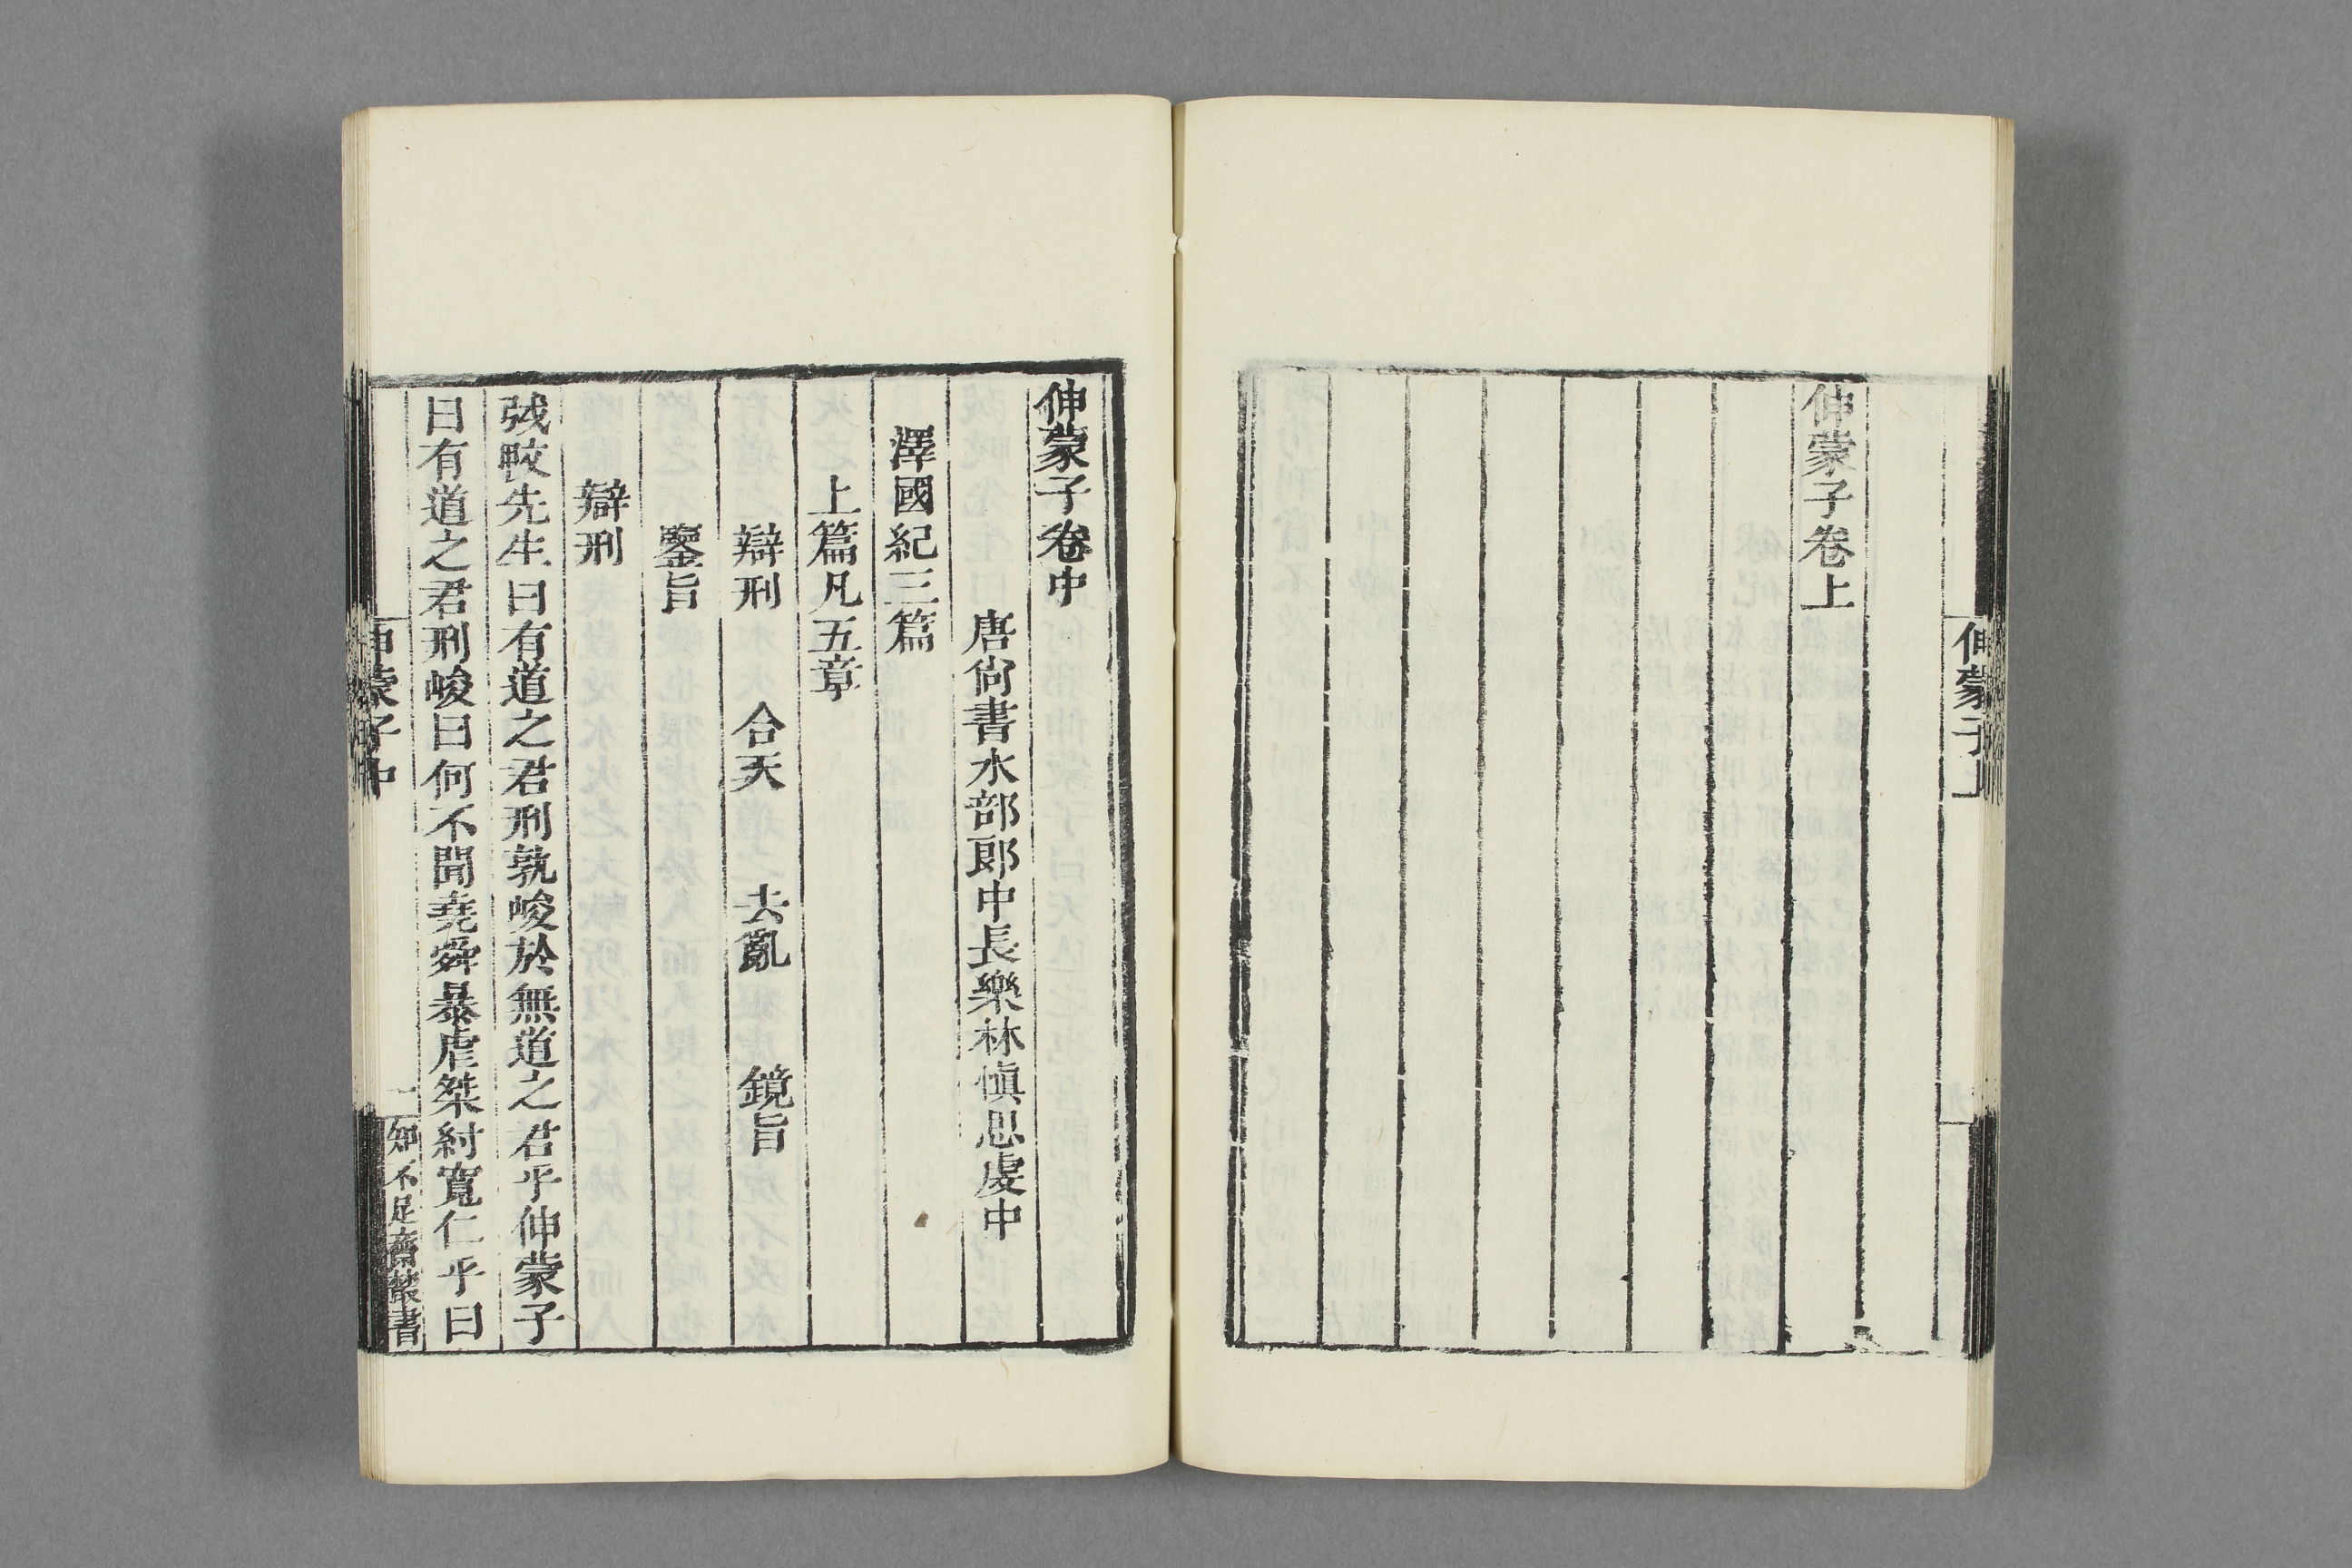 伸蒙子上
伸蒙子卷上
伸蒙子卷中
唐尙書水部郎中長樂林愼思虔中
澤國紀三篇
上篇凡五章
辯刑 合天 去亂 鏡旨
鑒旨
辯刑
弢䏨先生曰有道之君刑孰峻於無道之君乎伸蒙子
曰有道之君刑峻曰何不聞堯舜暴虐桀紂寬仁乎曰
伸蒙子中 一 知不足齋叢書